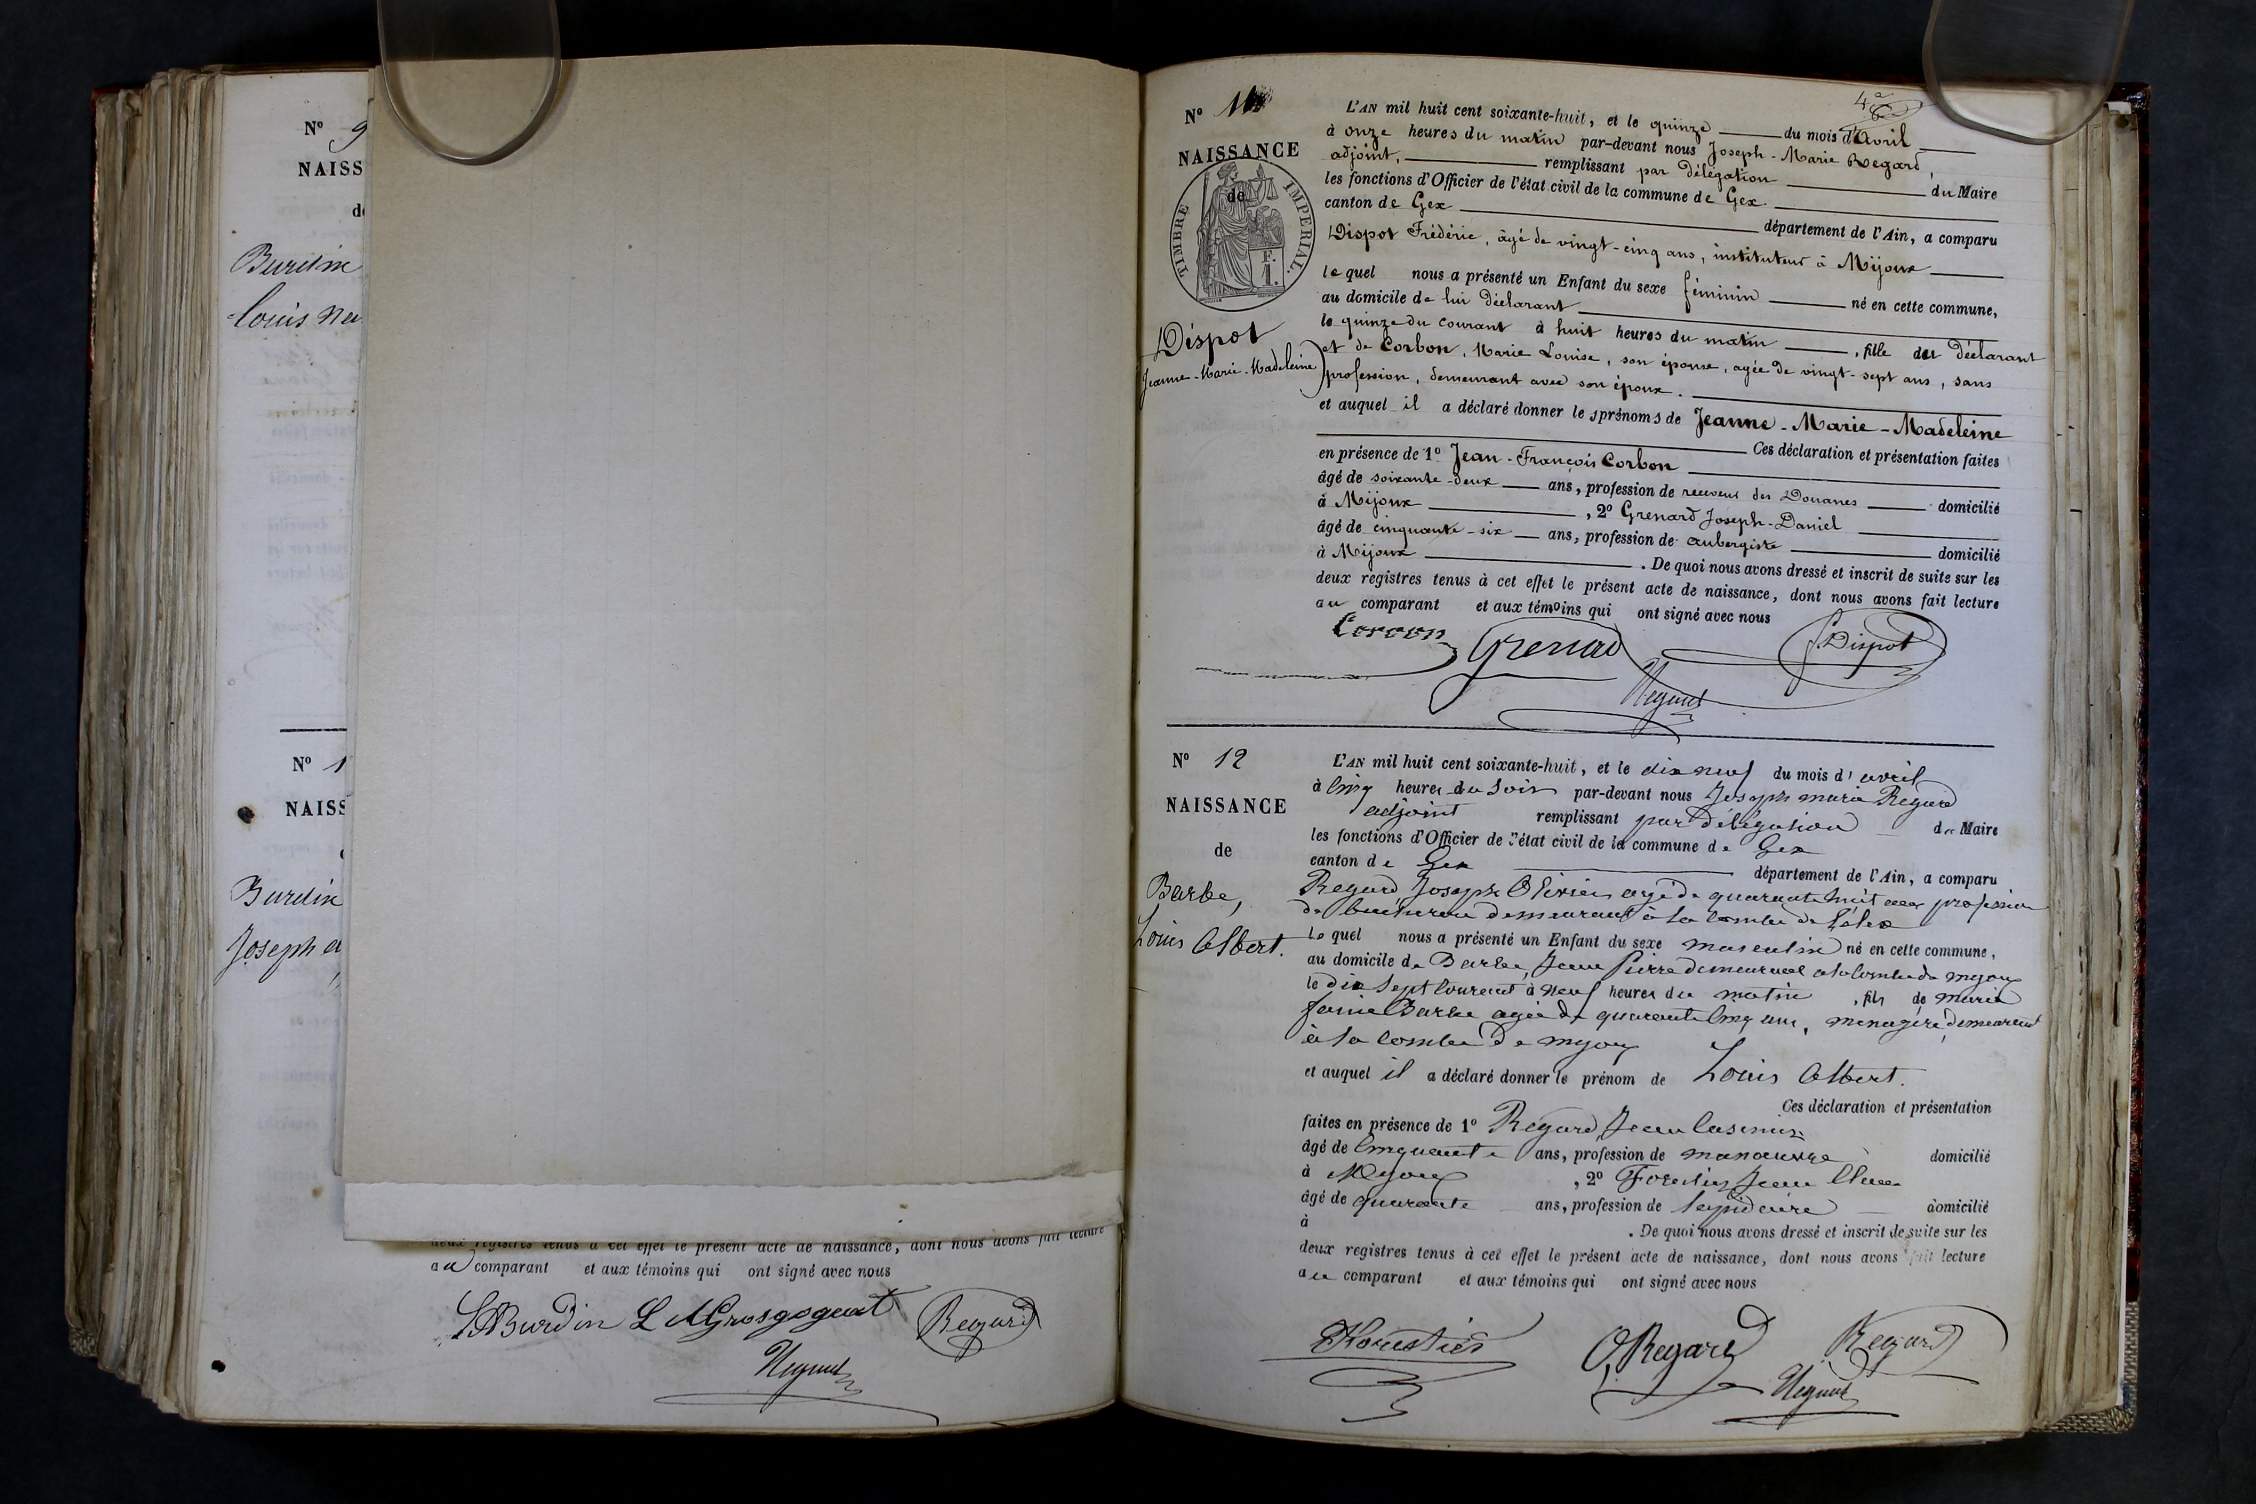 Nº 9
NAISS
Burdin
Louis
Nº 1
NAISS
Burdin
Joseph
deux registres tenus à cet effet le présent acte de naissance, dont nous avons fait lecture
au comparant et aux témoins qui ont signé avec nous
Burdin L M Grosgogeat Regard
Regard
4e
Nº 11
NAISSANCE
de
TIMBRE IMPERIAL.
F.
1.
Dispot
Jeanne-Marie-Madeleine
L'AN mil huit cent soixante-huit, et le quinze du mois d'Avril
à onze heures du matin par-devant nous Joseph-Marie Regard,
adjoint, remplissant par délégation du Maire
les fonctions d'Officier de l'état civil de la commune de Gex
canton de Gex département de l'Ain, a comparu
Dispot Frédéric, âgé de vingt-cinq ans, instituteur à Mijoux
lequel nous a présenté un Enfant du sexe féminin né en cette commune,
au domicile de lui déclarant
le quinze du courant à huit heures du matin, fille du déclarant
et de Corbon, Marie Louise, son épouse, agée de vingt-sept ans, sans
profession, demeurant avec son époux.
et auquel il a déclaré donner les prénoms de Jeanne-Marie-Madeleine
Ces déclaration et présentation faites
en présence de 1º Jean-François Corbon
âgé de soixante-deux ans, profession de receveur des Douanes domicilié
à Mijoux, 2º Grenard Joseph-Daniel
âgé de cinquante-six ans, profession de aubergiste domicilié
à Mijoux. De quoi nous avons dressé et inscrit de suite sur les
deux registres tenus à cet effet le présent acte de naissance, dont nous avons fait lecture
au comparant et aux témoins qui ont signé avec nous
Corbon Grenard F. Dispot
Regard
Nº 12
NAISSANCE
de
Barbe,
Louis Albert.
L'AN mil huit cent soixante-huit, et le dix neuf du mois d'avril
à cinq heures du soir par-devant nous Joseph marie Regard
adjoint remplissant par délégation du Maire
les fonctions d'Officier de l'état civil de la commune de Gex
canton de Gex département de l'Ain, a comparu
Regard Joseph Olivier agé de quarante huit ans profession
de bucheron demeurant à la combe de
Lequel nous a présenté un Enfant du sexe masculin né en cette commune,
au domicile de Barbe, Jean Pierre demeurant a la Combe de myoux
le dix sept Courant à neuf heures du matin, fils de marie
Barbe agée de quarante cinq ans, menagère, demeurant
à la combe de myoux
et auquel il a déclaré donner le prénom de Louis Albert.
Ces déclaration et présentation
faites en présence de 1º Regard, Jean Casimir
âgé de Cinquante ans, profession de manoeuvre domicilié
à Myoux, 2º Forestier Jean
âgé de quarante ans, profession de lapidaire domicilié
à . De quoi nous avons dressé et inscrit de suite sur les
deux registres tenus à cet effet le présent acte de naissance, dont nous avons fait lecture
au comparant et aux témoins qui ont signé avec nous
Forestier O Regard Regard
Regard